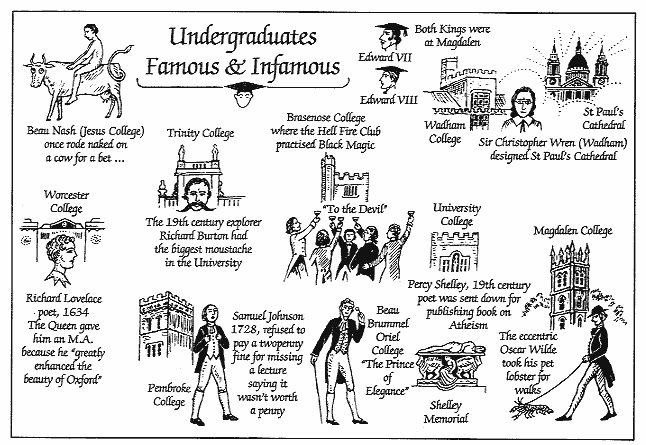 Undergraduates
Famous & Infamous
Edward VII
Edward VIII
Both Kings were
at Magdalen
Wadham
College
St Paul's
Cathedral
Sir Christopher Wren (Wadham)
designed St Paul's Cathedral
Beau Nash (Jesus College)
once rode naked on
a cow for a bet ...
Trinity College
The 19th century explorer
Richard Burton had
the biggest moustache
in the University
Brasenose College
where the Hell Fire Club
practised Black Magic
"To the Devil"
University
College
Percy Shelley, 19th century
poet was sent down for
publishing book on
Atheism
Shelley
Memorial
Magdalen College
The eccentric
Oscar Wilde
took his pet
lobster for
walks
Worcester
College
Richard Lovelace
poet, 1634
The Queen gave
him an M.A.
because he "greatly
enhanced the
beauty of Oxford"
Pembroke
College
Samuel Johnson
1728, refused to
pay a twopenny
fine for missing
a lecture
saying it
wasn't worth
a penny
Beau
Brummel
Oriel
College
"The Prince
of
Elegance"